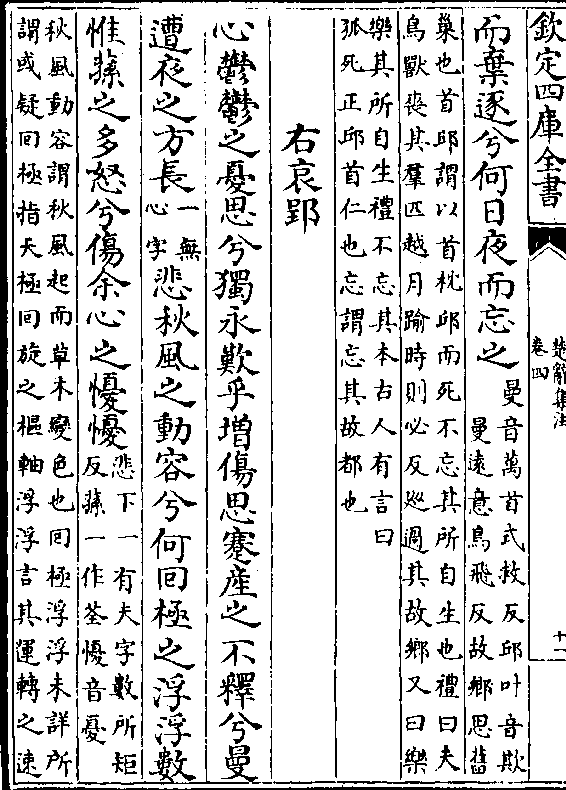 欽定四庫全書
楚辭集注
卷四
十一
而棄逐兮何日夜而忘之
曼音萬首式救反邱叶音欺
曼遠意鳥飛反故鄉思舊
巢也首邱謂以首枕邱而死不忘其所自生也禮曰夫
鳥獸喪其羣匹越月踰時則必反廵過其故鄉又曰樂
樂其所自生禮不忘其本古人有言曰
狐死正邱首仁也忘謂忘其故都也
右哀郢
心鬱鬱之憂思兮獨永歎乎增傷思蹇産之不釋兮曼
遭夜之方長一無心字悲秋風之動容兮何回極之浮浮數
惟蓀之多怒兮傷余心之懮懮
悲下一有夫字數所矩
反蓀一作荃懮音憂
秋風動容謂秋風起而草木變色也回極浮浮未詳所
謂或疑回極指天極回旋之樞軸浮浮言其運轉之速